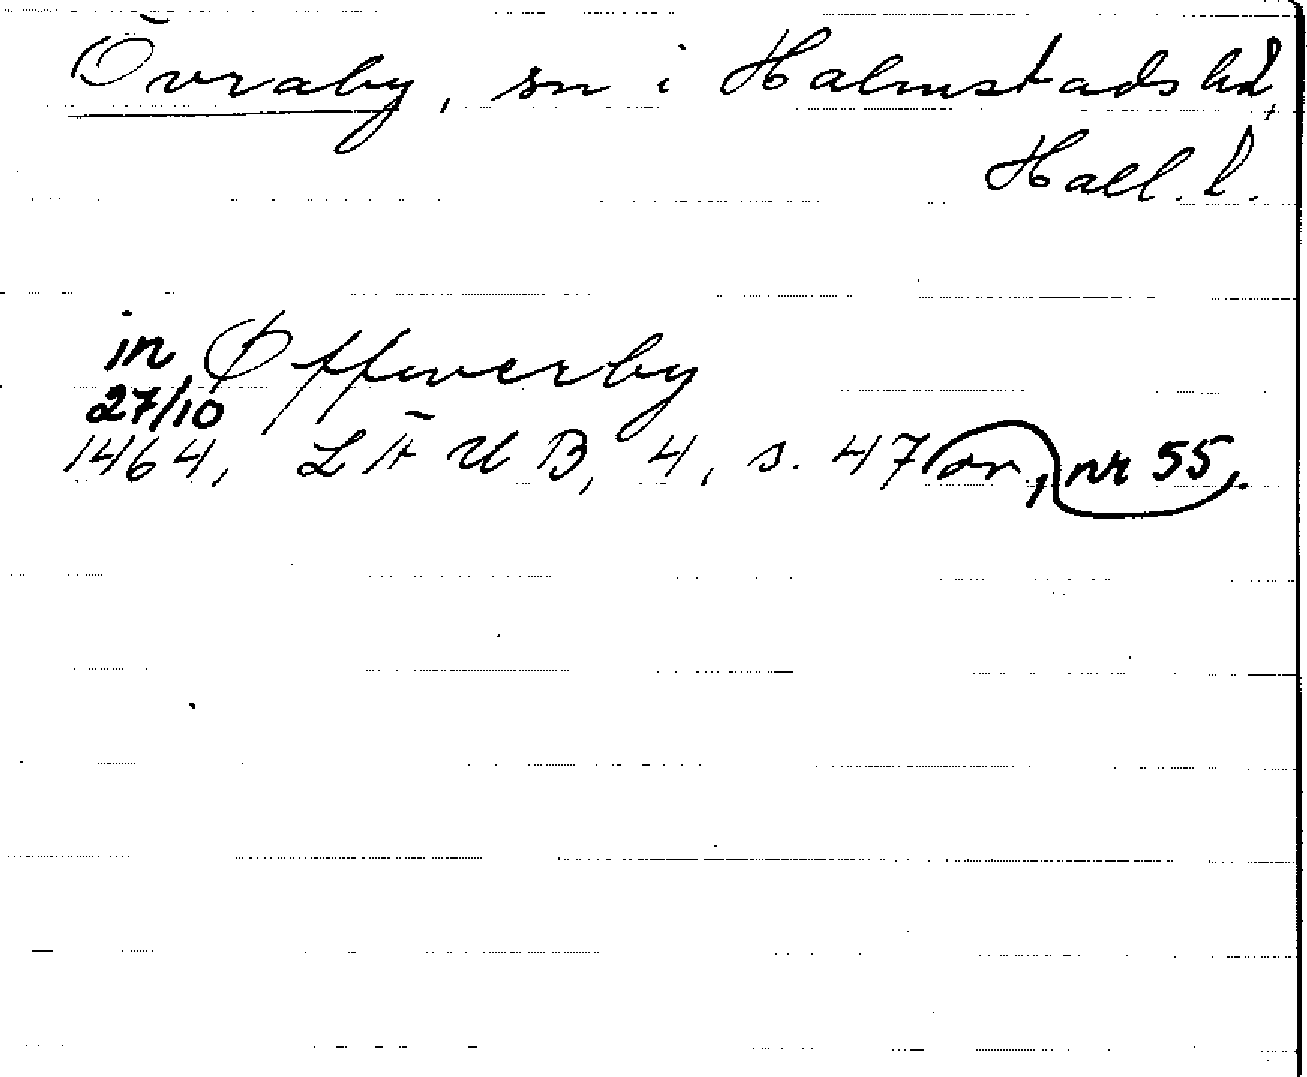 Övraby, sn i Halmstads hd,
Hall. l.
in Øffwerby
27/10
1464, LÄUB, 4, s. 47 or, nr 55.